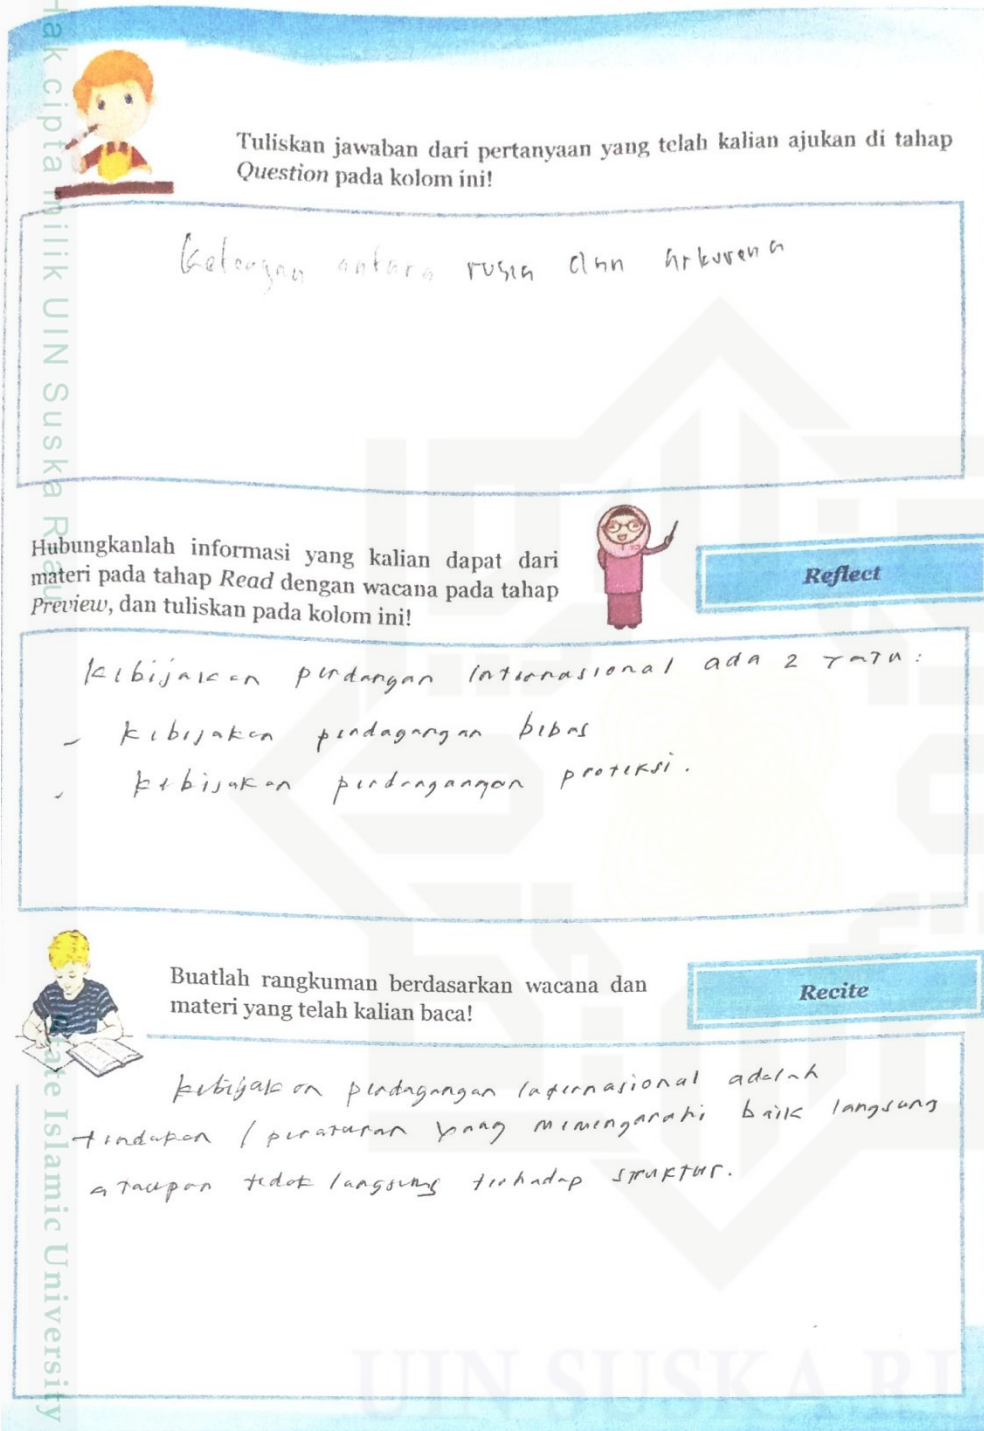 Hak cipta milik UIN Suska Riau
Tuliskan jawaban dari pertanyaan yang telah kalian ajukan di tahap
Question pada kolom ini!
antara rusia dan
Hubungkanlah informasi yang kalian dapat dari
materi pada tahap Read dengan wacana pada tahap
Preview, dan tuliskan pada kolom ini!
Reflect
kebijakan perdangan internasional ada 2 yaitu:
- kebijakan perdagangan bebas
- kebijakan perdragangan proteksi.
Buatlah rangkuman berdasarkan wacana dan
materi yang telah kalian baca!
Recite
kebijakan perdagangan internasional adalah
tindakan / peraturan yang memengaruhi baik langsung
ataupan tidak langsung terhadap struktur.
State Islamic University
UIN SUSKA RI